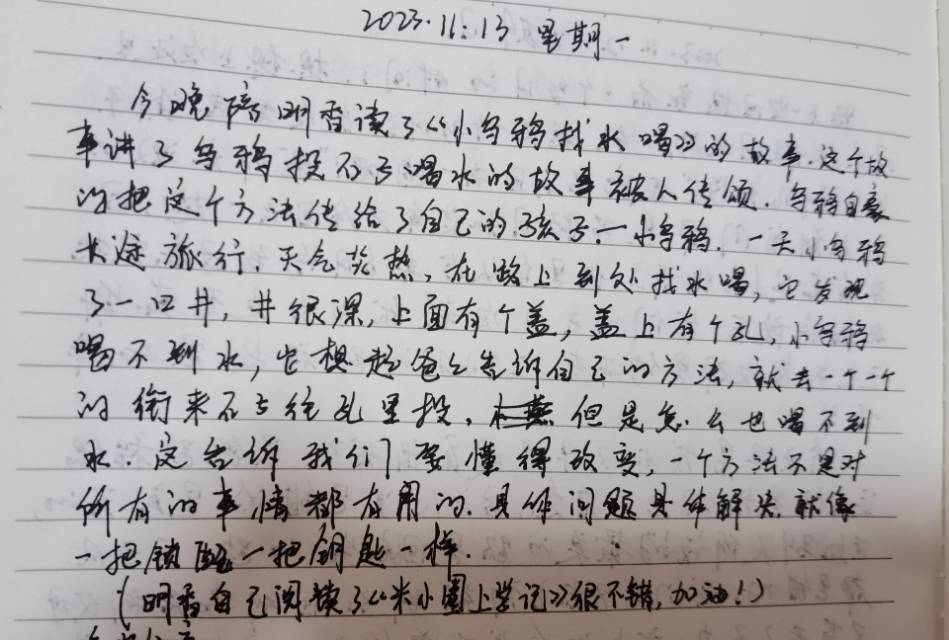 2023.11.13 星期一
今晚陪明香读了《小乌鸦找水喝》的故事.这个故
事讲了乌鸦投石子喝水的故事被人传颂.乌鸦自豪
的把这个方法传给了自己的孩子—小乌鸦.一天小乌鸦
长途旅行.天气炎热,在路上到处找水喝,它发现
了一口井,井很深,上面有个盖,盖上有个孔,小乌鸦
喝不到水,它想起爸爸告诉自己的方法,就去一个一个
的衔来石子往孔里投,但是怎么也喝不到
水.这告诉我们要懂得改变,一个方法不是对
所有的事情都有用的.具体问题具体解决.就像
一把锁配一把钥匙一样.
(明香自己阅读了《米小圈上学记》很不错,加油!)